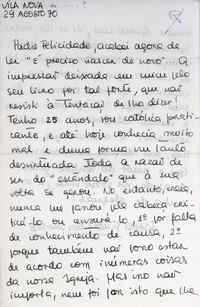 VILA NOVA
29 AGOSTO 70
Padre Felicidade, acabei agora de
ler "É preciso nascer de novo"... A
impressão deixada em mim pelo
seu livro foi tal forte, que não
resisti à tentação de lho dizer!
Tenho 25 anos, sou católica prati-
cante, e até hoje conhecia muito
mal e duma forma um tanto
desvirtuada toda a razão de
ser do "escândalo" que à sua
volta se gerou. No entanto, creia,
nunca me passou pela cabeça criti-
cá-lo ou censurá-lo, 1º por falta
de conhecimento de causa, 2º
porque também não posso estar
de acordo com inúmeras coisas
da nossa Igreja. Mas isso não
importa, nem foi por isto que lhe